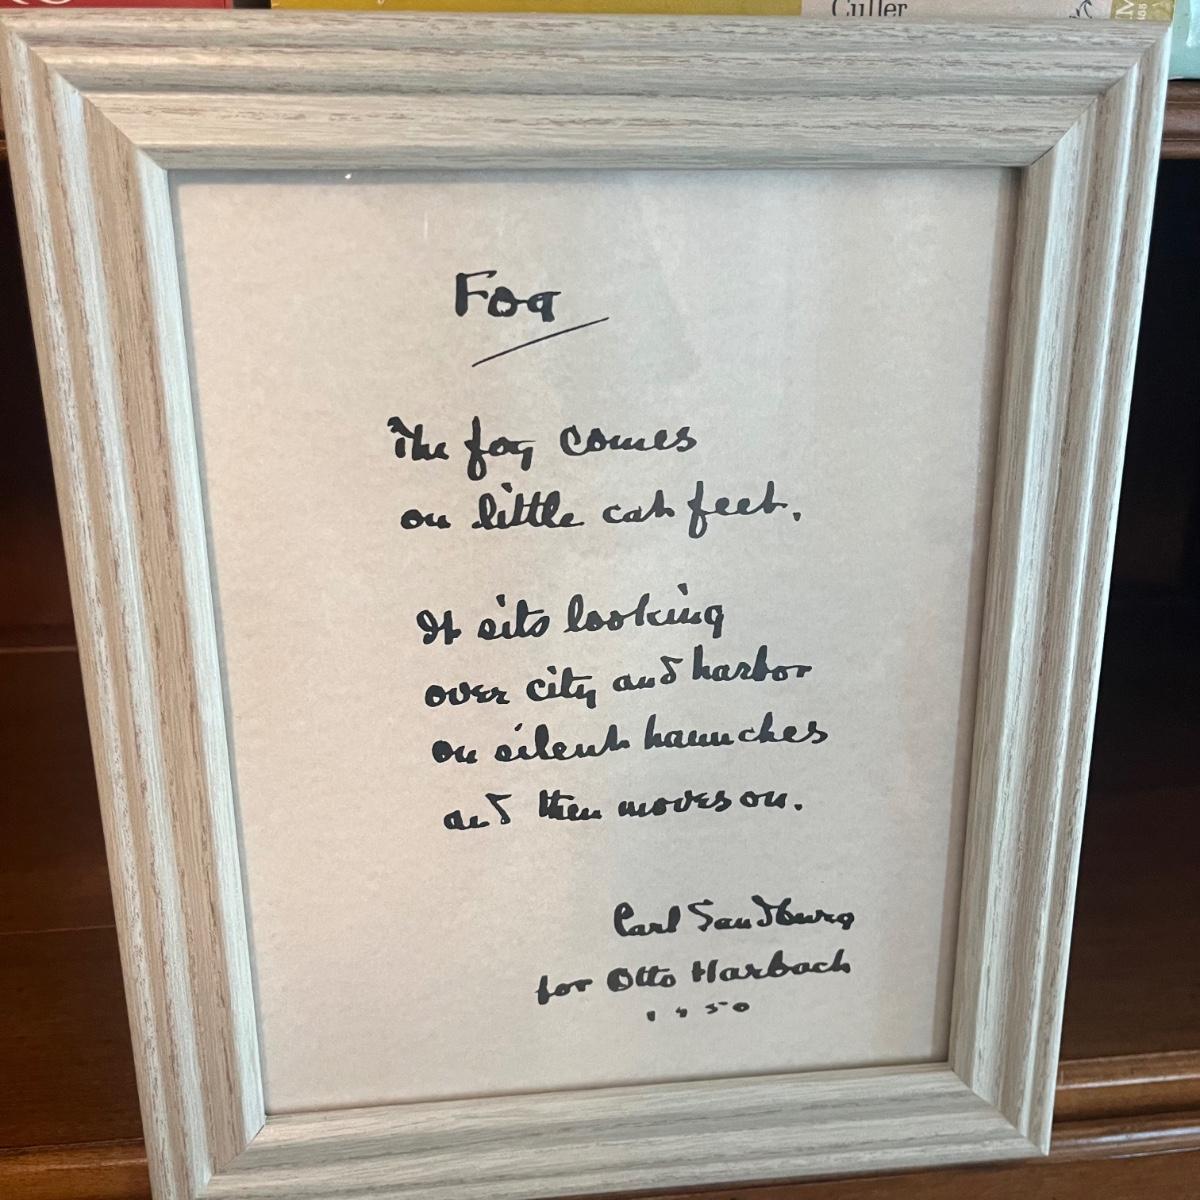 Culler
Fog
The fog comes
on little cat feet.
It sits looking
over city and harbor
on silent haunches
and then moves on.
Carl Sandburg
for Otto Harbach
1950